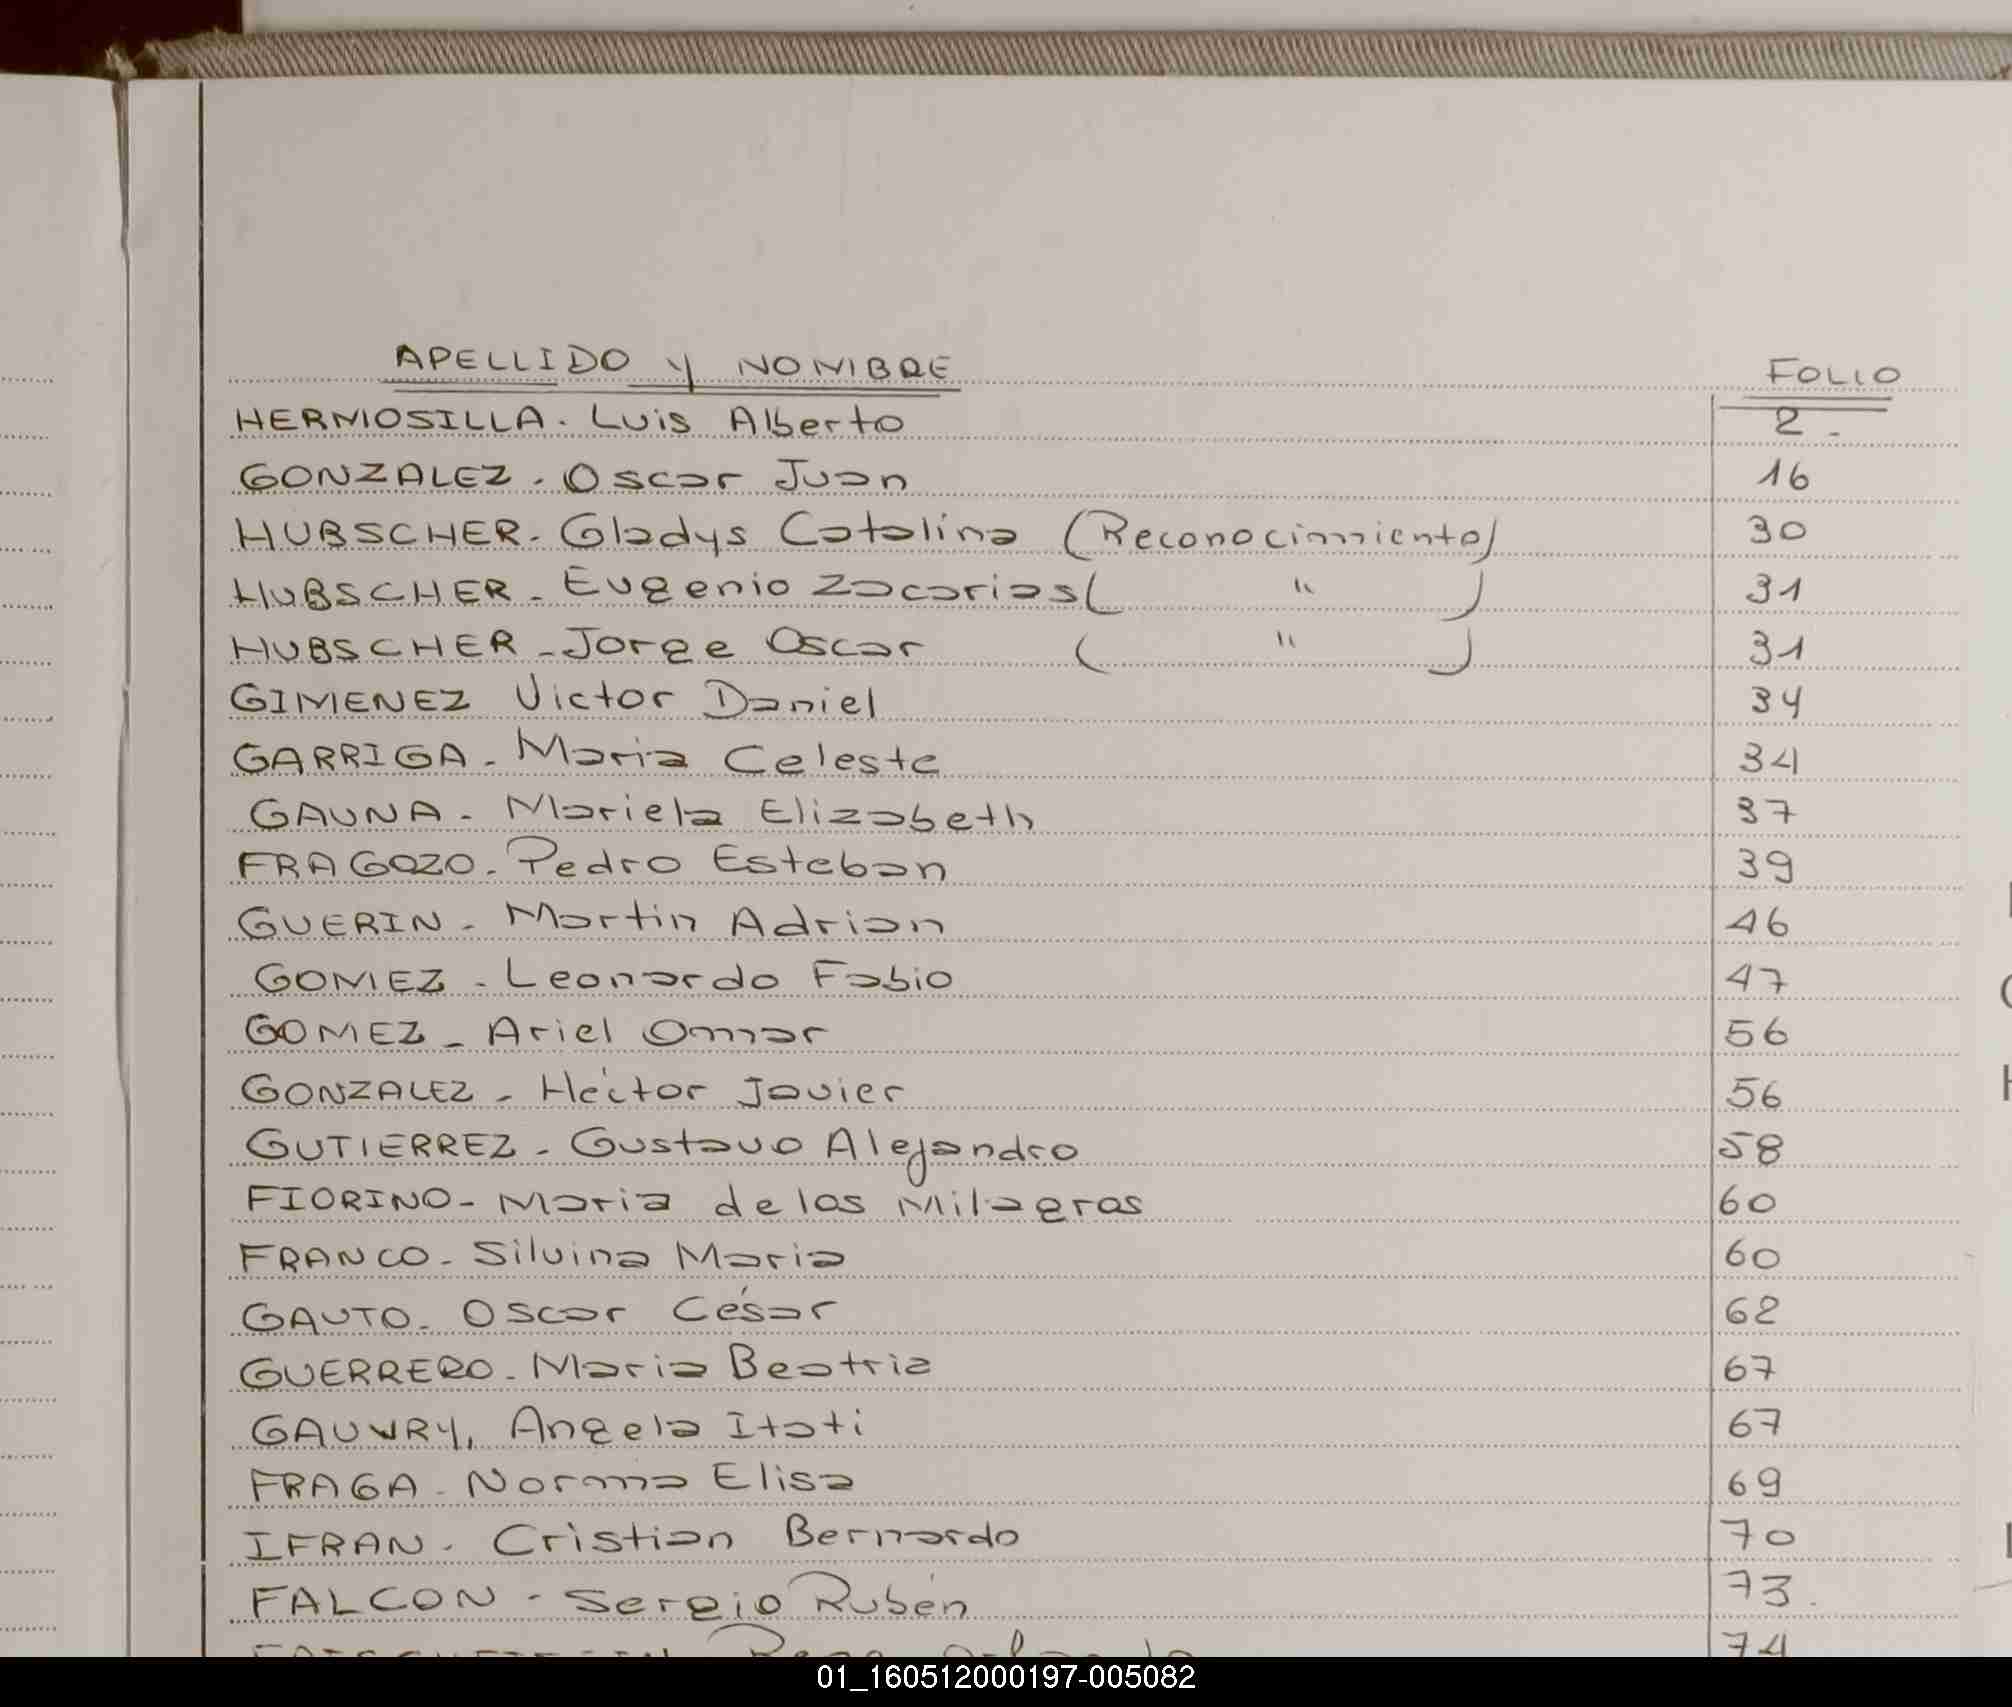 APELLIDO y NOMBRE FOLIO
HERMOSILLA. Luis Alberto 2.
GONZALEZ. Oscar Juan 16
HUBSCHER. Gladys Catalina (Reconocimiento) 30
HUBSCHER - Eugenio Zacarias ( " ) 31
HUBSCHER - Jorge Oscar ( " ) 31
GIMENEZ Victor Daniel 34
GARRIGA - Maria Celeste 34
GAUNA - Mariela Elizabeth 37
FRAGOZO. Pedro Esteban 39
GUERIN - Martin Adrian 46
GOMEZ - Leonardo Fabio 47
GOMEZ - Ariel Omar 56
GONZALEZ - Héctor Javier 56
GUTIERREZ - Gustavo Alejandro 58
FIORINO - Maria de los Milagros 60
FRANCO - Silvina Maria 60
GAUTO. Oscar César 62
GUERRERO. Maria Beatriz 67
GAUWRY, Angela Itati 67
FRAGA - Norma Elisa 69
IFRAN. Cristian Bernardo 70
FALCON - Sergio Rubén 73.
74
01_160512000197-005082